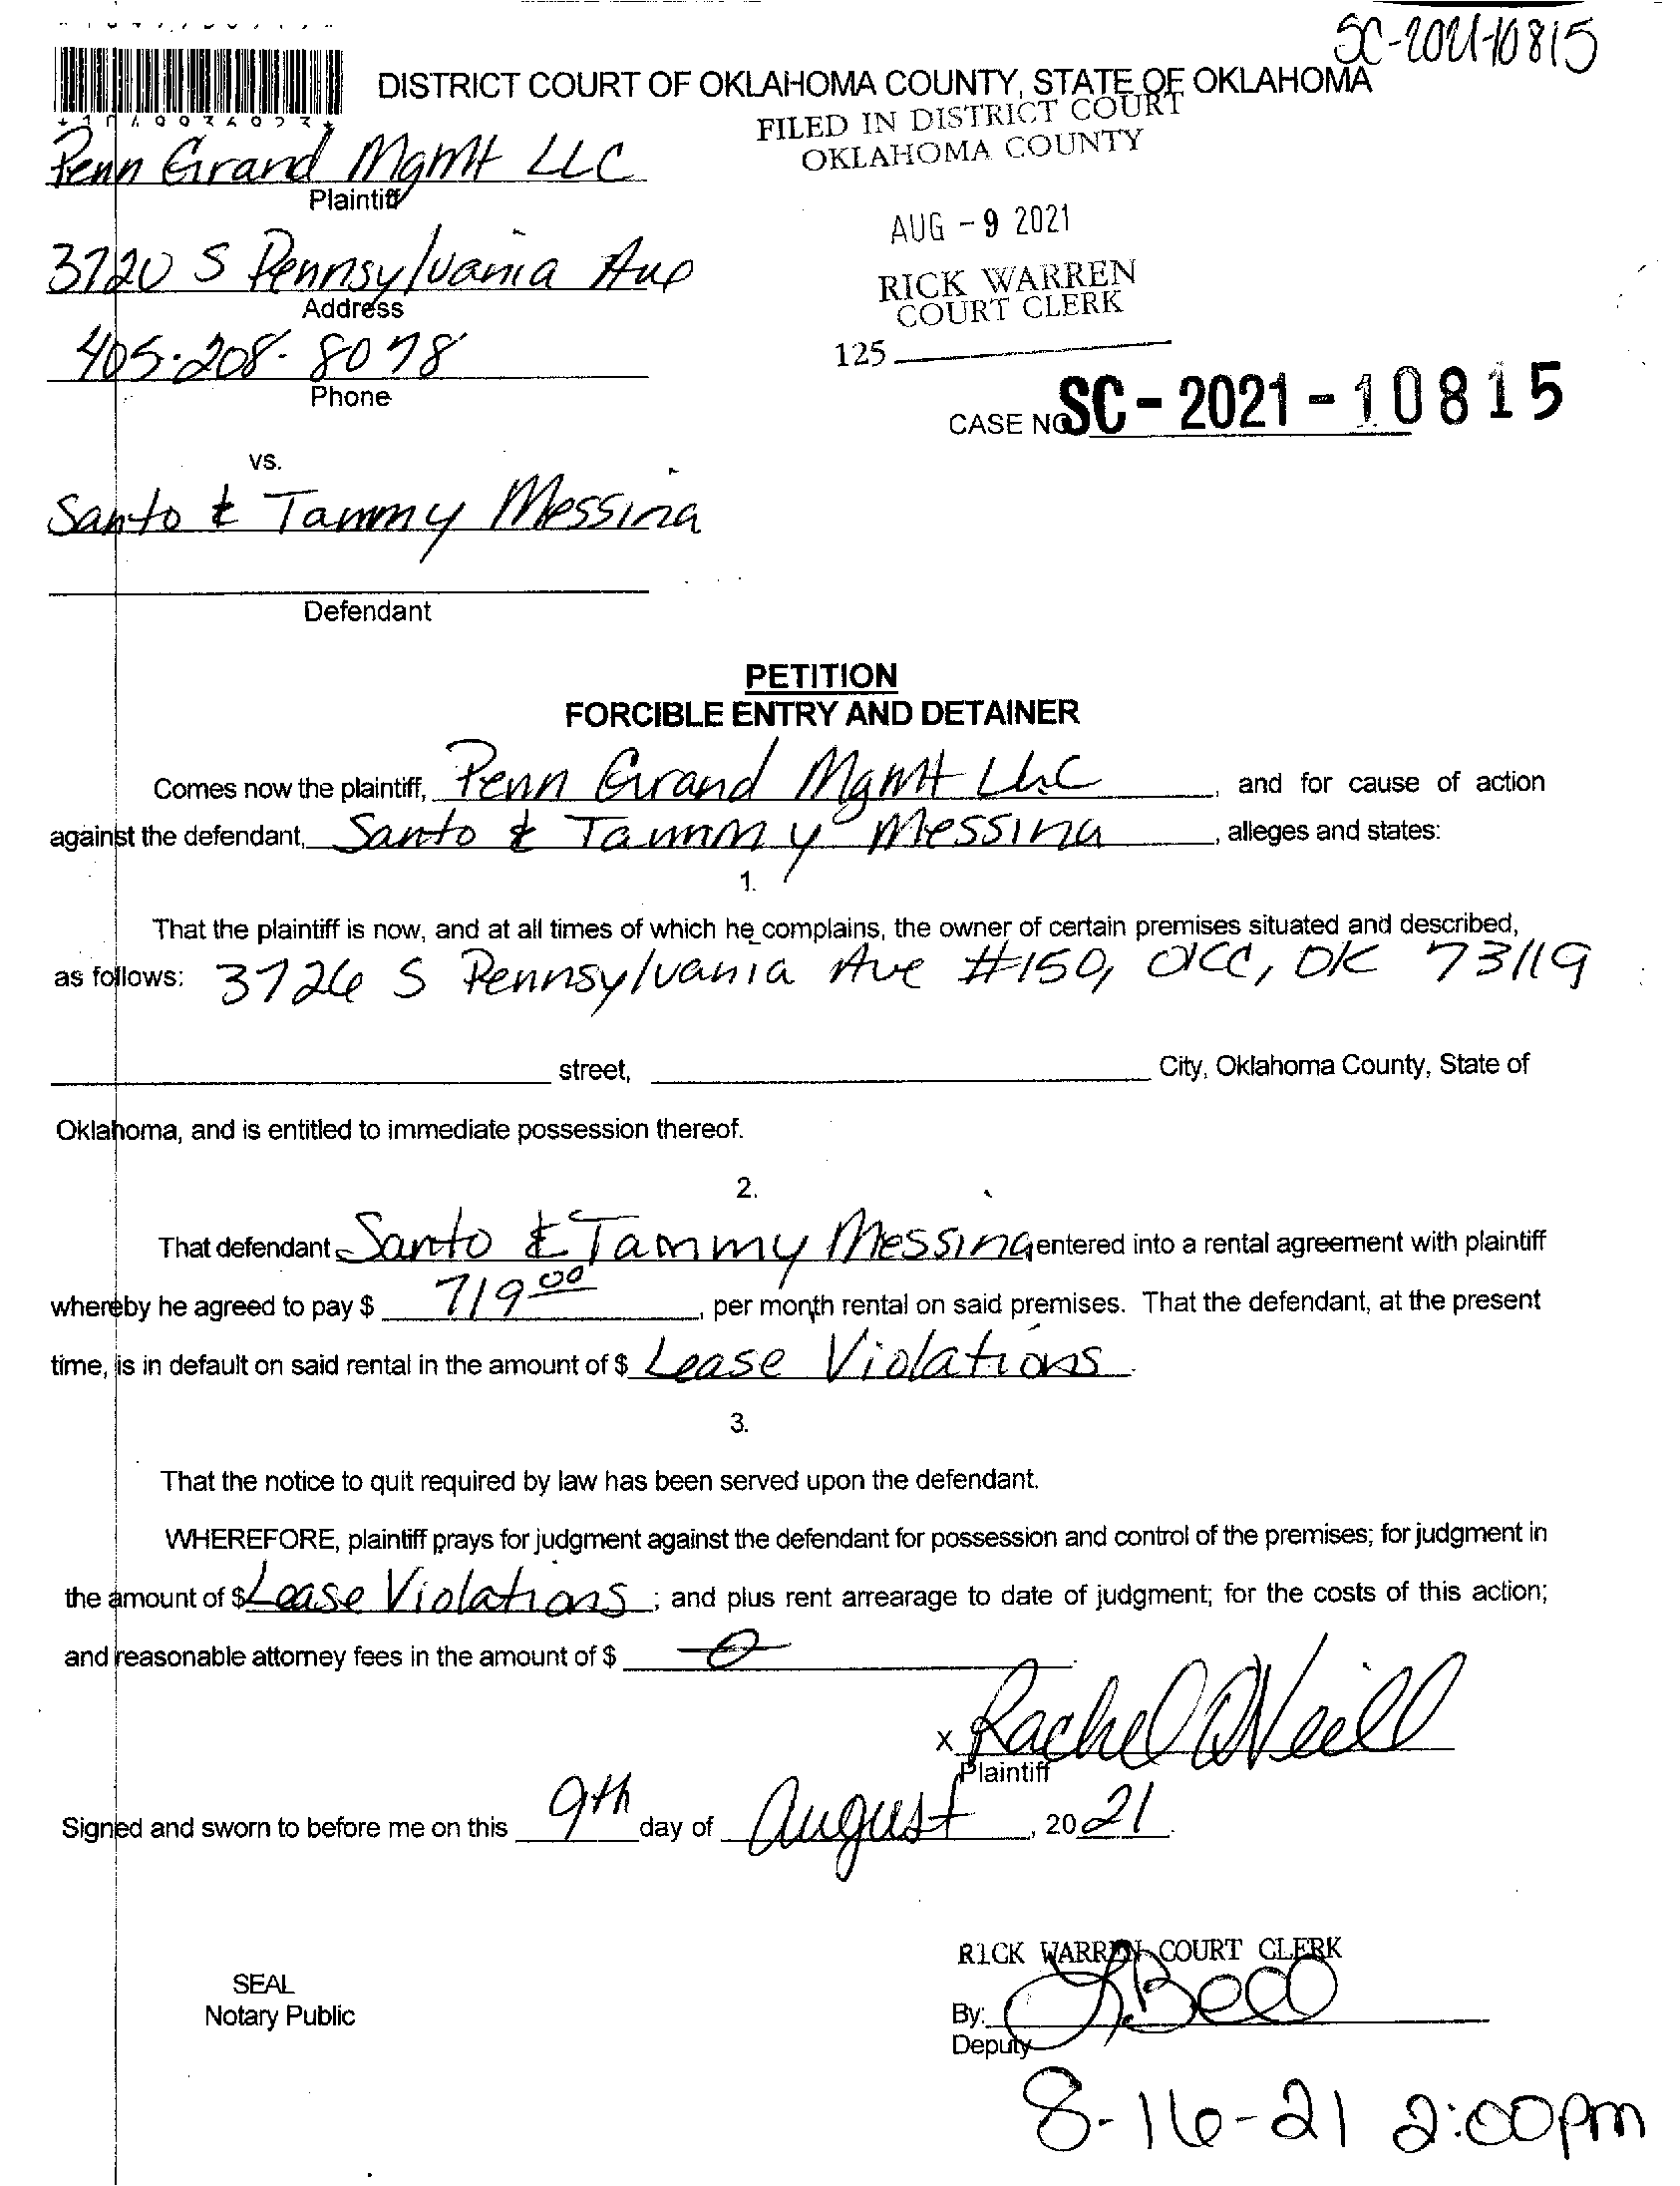 SC-2021-10815
DISTRICT COURT OF OKLAHOMA COUNTY, STATE OF OKLAHOMA
FILED IN DISTRICT COURT
OKLAHOMA COUNTY
Penn Grand Mgmt LLC
Plaintiff
AUG - 9 2021
3720 S Pennsylvania Ave
Address
RICK WARREN
COURT CLERK
405-208-8078
Phone
125
CASE NO SC-2021-10815
vs.
Santo & Tammy Messina
Defendant
PETITION
FORCIBLE ENTRY AND DETAINER
Comes now the plaintiff, Penn Grand Mgmt LLC, and for cause of action
against the defendant, Santo & Tammy Messina, alleges and states:
1.
That the plaintiff is now, and at all times of which he complains, the owner of certain premises situated and described,
as follows: 3726 S Pennsylvania Ave #150, OKC, OK 73119
street, City, Oklahoma County, State of
Oklahoma, and is entitled to immediate possession thereof.
2.
That defendant Santo & Tammy Messina entered into a rental agreement with plaintiff
whereby he agreed to pay $ 719 00, per month rental on said premises. That the defendant, at the present
time, is in default on said rental in the amount of $ Lease Violations.
3.
That the notice to quit required by law has been served upon the defendant.
WHEREFORE, plaintiff prays for judgment against the defendant for possession and control of the premises; for judgment in
the amount of $ Lease Violations; and plus rent arrearage to date of judgment; for the costs of this action;
and reasonable attorney fees in the amount of $ 0
x Rachel O'Neill
Plaintiff
Signed and sworn to before me on this 9th day of August, 2021.
RICK WARREN COURT CLERK
SEAL
Notary Public
By:
Deputy
8-16-21 2:00pm